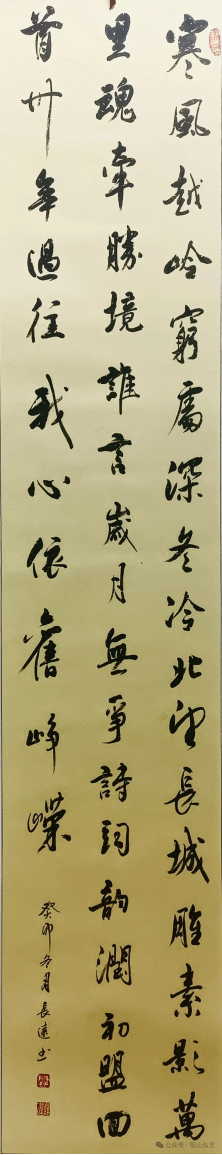 寒風越岭窮處深冬冷北望長城雕素影萬
里魂牽勝境誰言歲月無爭詩詞韵潤初盟回
首卅年過往我心依舊崢嶸
癸卯冬月長遠书
公众号